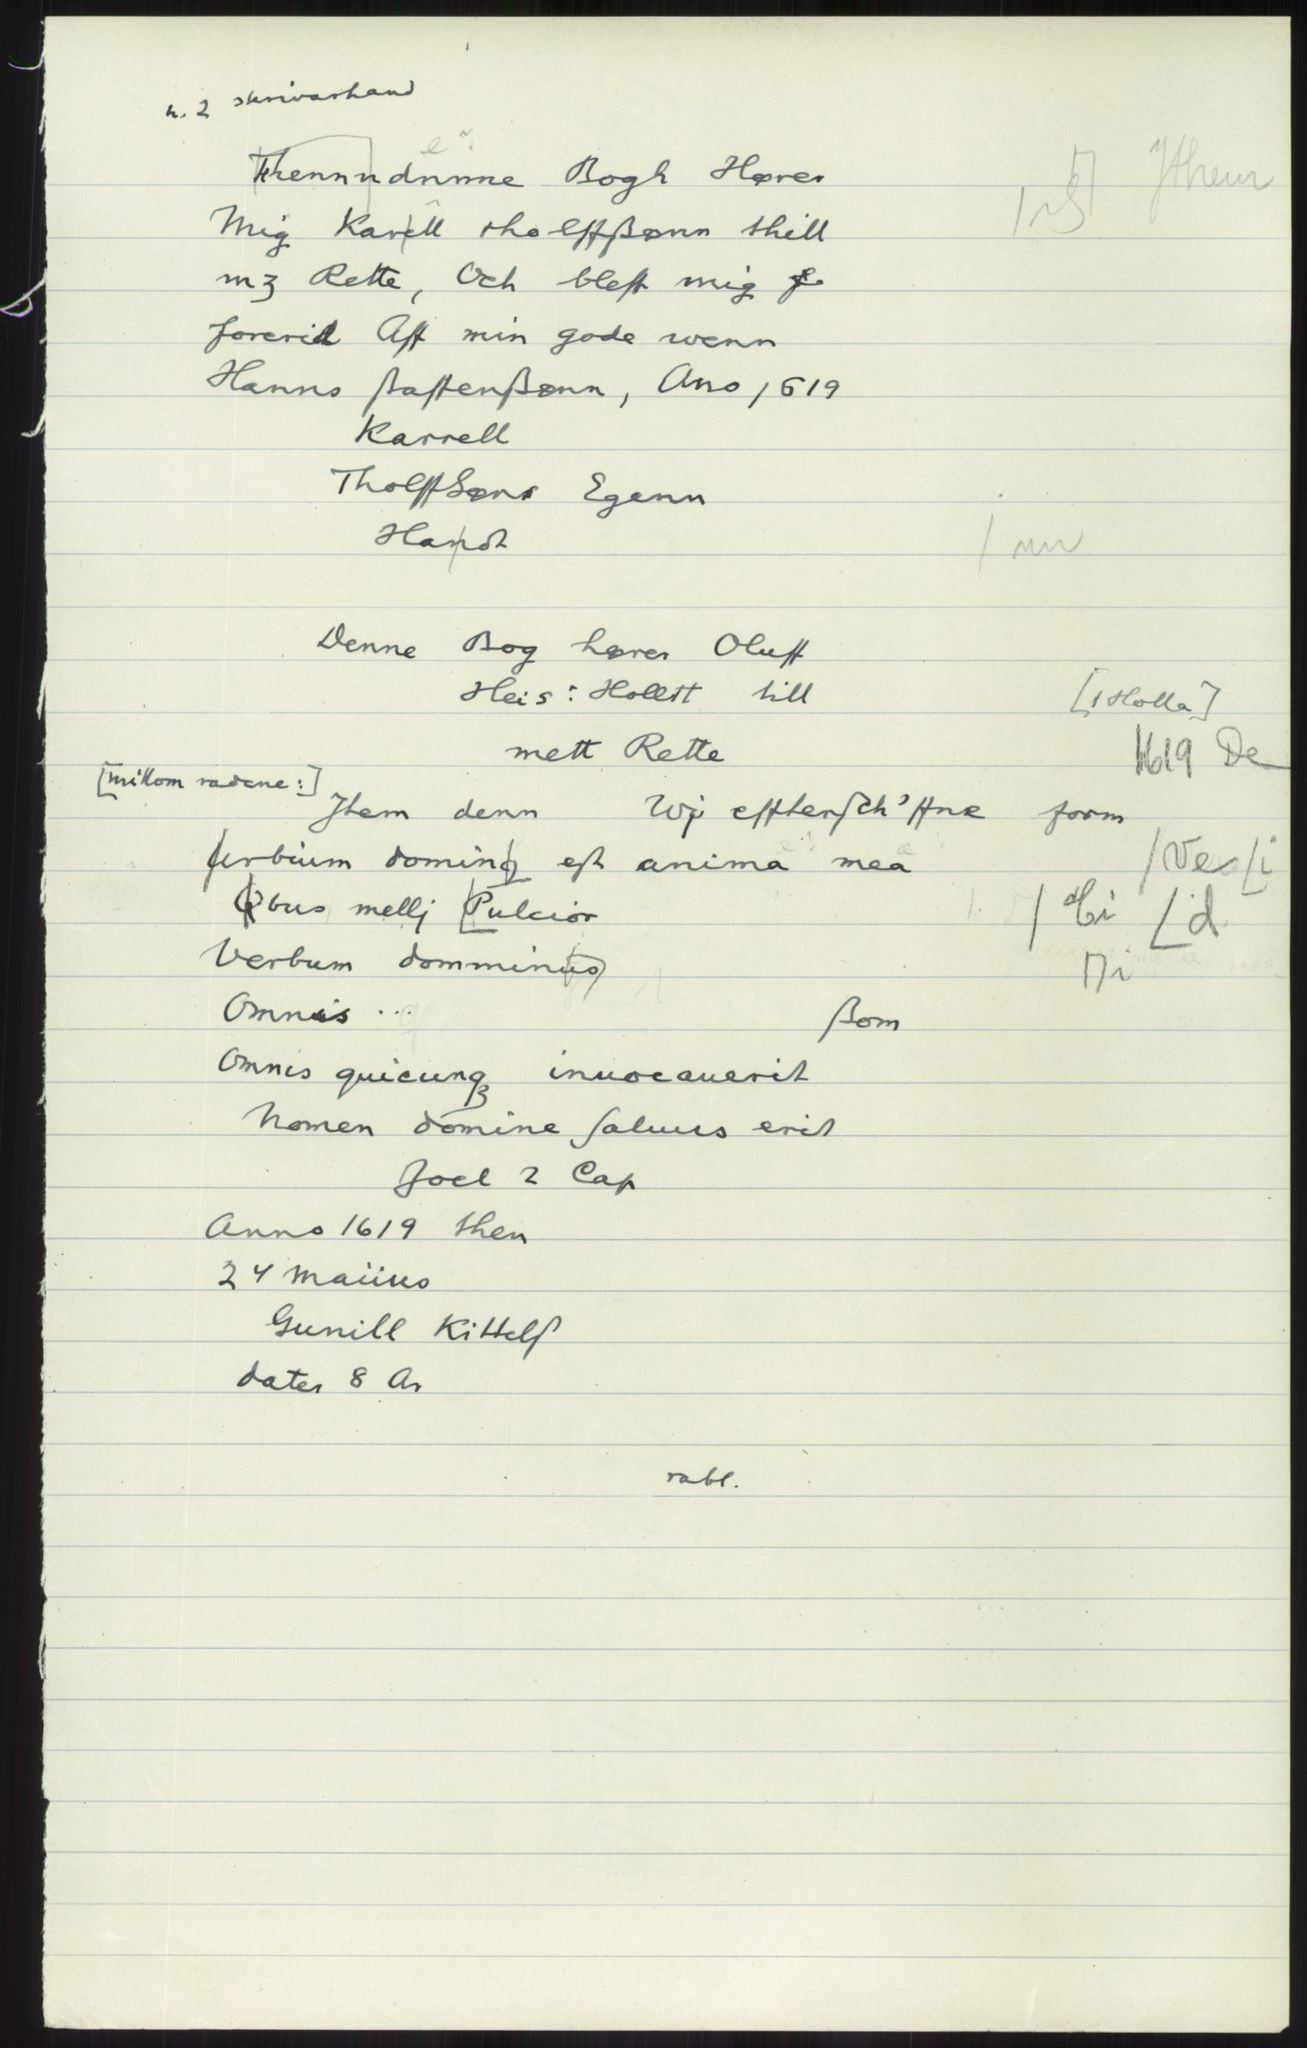 n. 2 skrivarhand
Thennn dnnne Bogh Hører
Mig Karell tholffßønn thill
mꝫ Rette, Och bleff mig
forerid Aff min gode wenn
Hanns ßaffenßønn, Ano 1619
Karrell
Tholffsøns Egenn
Handt
/ nn
Denne Bog hører Oluff
Heis: Hollett till [i Holla]
mett Rette 1619 De
[millom radene:]
Jtem denn Wÿ effterſch'ffne form
urbium dominꝫ eſt anima mea / Ve ⌊i
Qbus mellj Pulcior / di ⌊d
Verbum domminus ⌈i
Omnis ... ßom
Omnis quicunqꝫ inuocauerit
Nomen domine ſaluus erit
Joel 2 Cap
Anno 1619 then
24 maiius
Gunill Kittelß
dater 8 Ar
rabl.